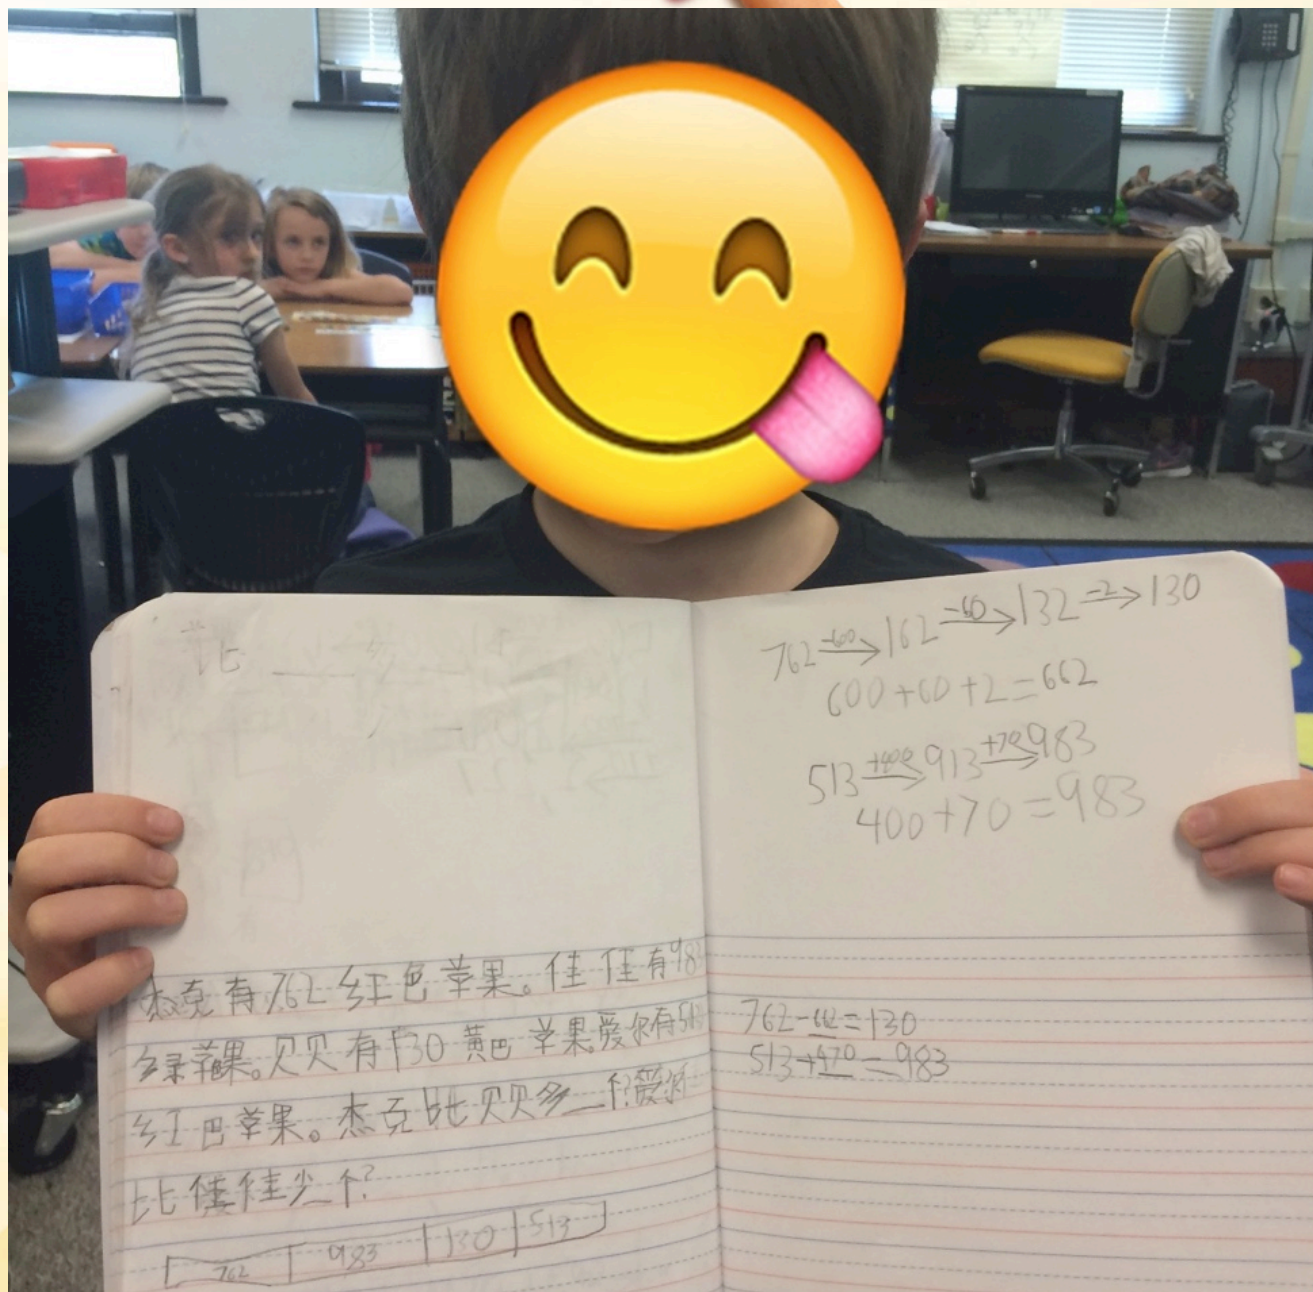 比
杰克有762红色苹果。佳佳有983
绿苹果。贝贝有130黄巴苹果。爱尔有513
红巴苹果。杰克比贝贝多__个?爱尔
比佳佳少_个?
762 983 130 513
762 -600→ 162 -60→ 132 -2→ 130
600+60+2=662
513 +400→ 913 +70→ 983
400+70=983
762-662=130
513+470=983